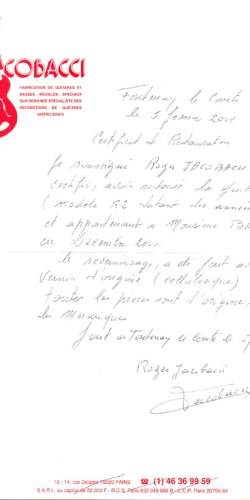 COBACCI
FABRICATION DE GUITARES ET
BASSES MODELES SPECIAUX
SUR DEMANDE SPÉCIALISTE DES
RÉPARATIONS DE GUITARES
AMÉRICAINES
Fontenay le Comte
le 5 février 2001
Certificat de Restauration
Je soussigné Roger JACOBACCI
certifie, avoir restauré la
(modèle datant des années
et appartenant a Monsieur
en Décembre 2000.
le revernissage, a été fait au
Vernis d'origine (cellulosique)
toutes les pièces sont d'origine,
la Musique
fait a Fontenay le comte le
Roger Jacobacci
12 - 14, rue 75020 PARIS ☎ (1) 46 36 99 59
S.A.R.L. au capital de 52 000 F - R.C.S. Paris 632 049 868 B - C.C.P. Paris